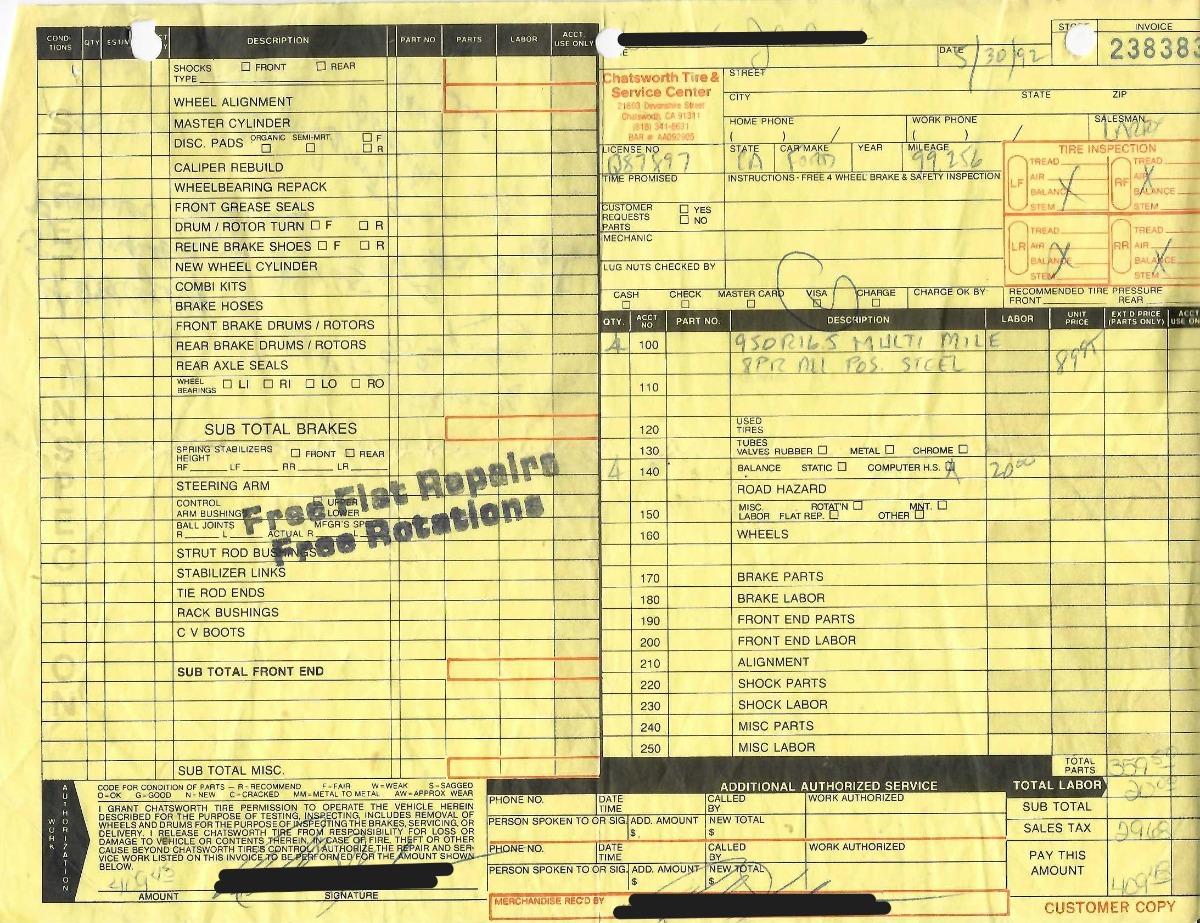 COND-ITIONS QTY DESCRIPTION PART NO PARTS LABOR ACCT. USE ONLY
SHOCKS ☐ FRONT ☐ REAR
TYPE
WHEEL ALIGNMENT
MASTER CYLINDER
DISC. PADS ORGANIC ☐ SEMI-MRT. ☐ ☐ F ☐ R
CALIPER REBUILD
WHEELBEARING REPACK
FRONT GREASE SEALS
DRUM / ROTOR TURN ☐ F ☐ R
RELINE BRAKE SHOES ☐ F ☐ R
NEW WHEEL CYLINDER
COMBI KITS
BRAKE HOSES
FRONT BRAKE DRUMS / ROTORS
REAR BRAKE DRUMS / ROTORS
REAR AXLE SEALS
WHEEL BEARINGS ☐ LI ☐ RI ☐ LO ☐ RO
SUB TOTAL BRAKES
SPRING STABILIZERS ☐ FRONT ☐ REAR
HEIGHT
RF LF RR LR
STEERING ARM
CONTROL ARM BUSHINGS UPPER LOWER
BALL JOINTS MFGR'S
R L ACTUAL R L
STRUT ROD BUSHINGS
STABILIZER LINKS
TIE ROD ENDS
RACK BUSHINGS
C V BOOTS
Free Flat Repairs
Free Rotations
SUB TOTAL FRONT END
SUB TOTAL MISC.
WORK AUTHORIZATION
CODE FOR CONDITION OF PARTS — R - RECOMMEND F—FAIR W—WEAK S—SAGGED
O—OK G—GOOD N—NEW C—CRACKED MM—METAL TO METAL AW—APPROX WEAR
I GRANT CHATSWORTH TIRE PERMISSION TO OPERATE THE VEHICLE HEREIN
DESCRIBED FOR THE PURPOSE OF TESTING, INSPECTING, INCLUDES REMOVAL OF
WHEELS AND DRUMS FOR THE PURPOSE OF INSPECTING THE BRAKES, SERVICING, OR
DELIVERY. I RELEASE CHATSWORTH TIRE FROM RESPONSIBILITY FOR LOSS OR
DAMAGE TO VEHICLE OR CONTENTS THEREIN, IN CASE OF FIRE, THEFT OR OTHER
CAUSE BEYOND CHATSWORTH TIRE'S CONTROL. AUTHORIZE THE REPAIR AND SER-
VICE WORK LISTED ON THIS INVOICE TO BE PERFORMED FOR THE AMOUNT SHOWN
BELOW.
409.43
AMOUNT SIGNATURE
DATE 5/30/92
INVOICE
238383
Chatsworth Tire &
Service Center
21603 Devonshire Street
Chatsworth, CA 91311
(818) 341-8631
BAR # AA092905
STREET
CITY STATE ZIP
HOME PHONE WORK PHONE SALESMAN
( ) / ( ) / LARRY
LICENSE NO STATE CAR MAKE YEAR MILEAGE
CA FORD 99,256
TIME PROMISED
INSTRUCTIONS - FREE 4 WHEEL BRAKE & SAFETY INSPECTION
CUSTOMER REQUESTS PARTS ☐ YES ☐ NO
MECHANIC
LUG NUTS CHECKED BY
TIRE INSPECTION
LF TREAD AIR BALANCE STEM X
RF TREAD AIR BALANCE STEM X
LR TREAD AIR BALANCE STEM X
RR TREAD AIR BALANCE STEM X
CASH ☐ CHECK ☐ MASTER CARD ☐ VISA ☐ CHARGE ☐ CHARGE OK BY
RECOMMENDED TIRE PRESSURE
FRONT REAR
QTY. ACCT NO PART NO. DESCRIPTION LABOR UNIT PRICE EXT'D PRICE (PARTS ONLY) ACCT USE ON
4 100 950R16.5 MULTI MILE 89.95
8PR ALL POS. STEEL
110
120 USED TIRES
130 TUBES VALVES RUBBER ☐ METAL ☐ CHROME ☐
4 140 BALANCE STATIC ☐ COMPUTER H.S. ☐ 20.00
ROAD HAZARD
150 MISC. LABOR ROTAT'N ☐ MNT. ☐ FLAT REP. ☐ OTHER ☐
160 WHEELS
170 BRAKE PARTS
180 BRAKE LABOR
190 FRONT END PARTS
200 FRONT END LABOR
210 ALIGNMENT
220 SHOCK PARTS
230 SHOCK LABOR
240 MISC PARTS
250 MISC LABOR
TOTAL PARTS 359.80
ADDITIONAL AUTHORIZED SERVICE
TOTAL LABOR 20.00
PHONE NO. DATE TIME CALLED BY WORK AUTHORIZED
SUB TOTAL
PERSON SPOKEN TO OR SIG. ADD. AMOUNT $ NEW TOTAL $
SALES TAX 29.68
PHONE NO. DATE TIME CALLED BY WORK AUTHORIZED
PERSON SPOKEN TO OR SIG. ADD. AMOUNT $ NEW TOTAL $
PAY THIS AMOUNT 409.48
MERCHANDISE REC'D BY
CUSTOMER COPY